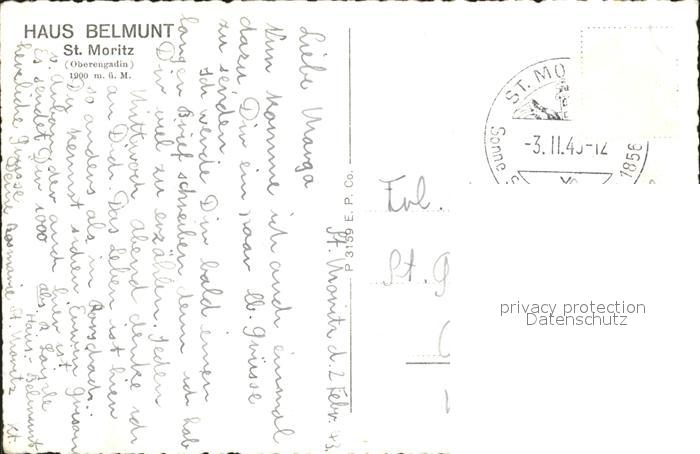 HAUS BELMUNT
St. Moritz
(Oberengadin)
1900 m. ü. M.
St. Moritz d. 2. Febr. 43.
Liebe Marga
Nun komme ich auch einmal
dazu Dir ein paar lb. Grüsse
zu senden.
Ich werde Dir bald einen
langen Brief schreiben denn ich hab
Dir viel zu erzählen. Jeden
Mittwoch abend denke ich
an Dich. Das Leben ist hier
so anders als in Rorschach.
Du kennst sicher Erwin
der auch hier ist
Es sendet Dir 1000
herzliche Grüsse
Deine Rosmarie
Haus Belmunt
St. Moritz
P 3159 E. P. Co.
ST. MO
-3.II.43-12
1856
Sonne
Frl.
St. G
privacy protection
Datenschutz